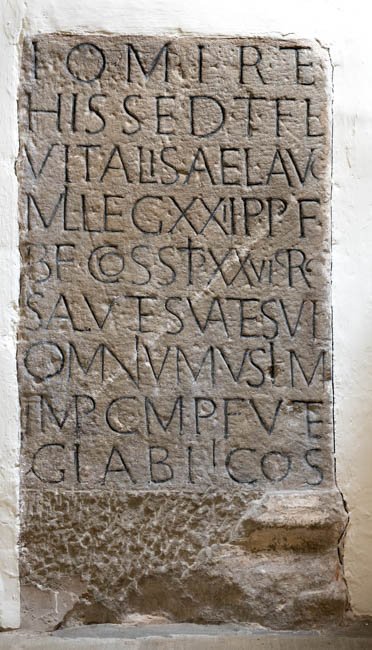 I O M I R E
HIS SED T FL
VITALIS AEL AVG
MIL LEG XXII P P F
BF COS STP XXVI S R C
SALVTE SVA E SVO
OMNIVM V S L M
IMP COM P F V TE
GLABR II COS